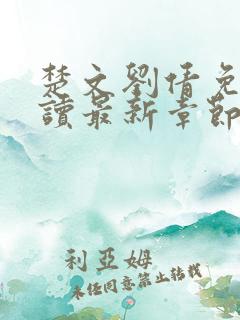 楚文劉倩免
讀最新章節
利亞姆
未经同意禁止转载